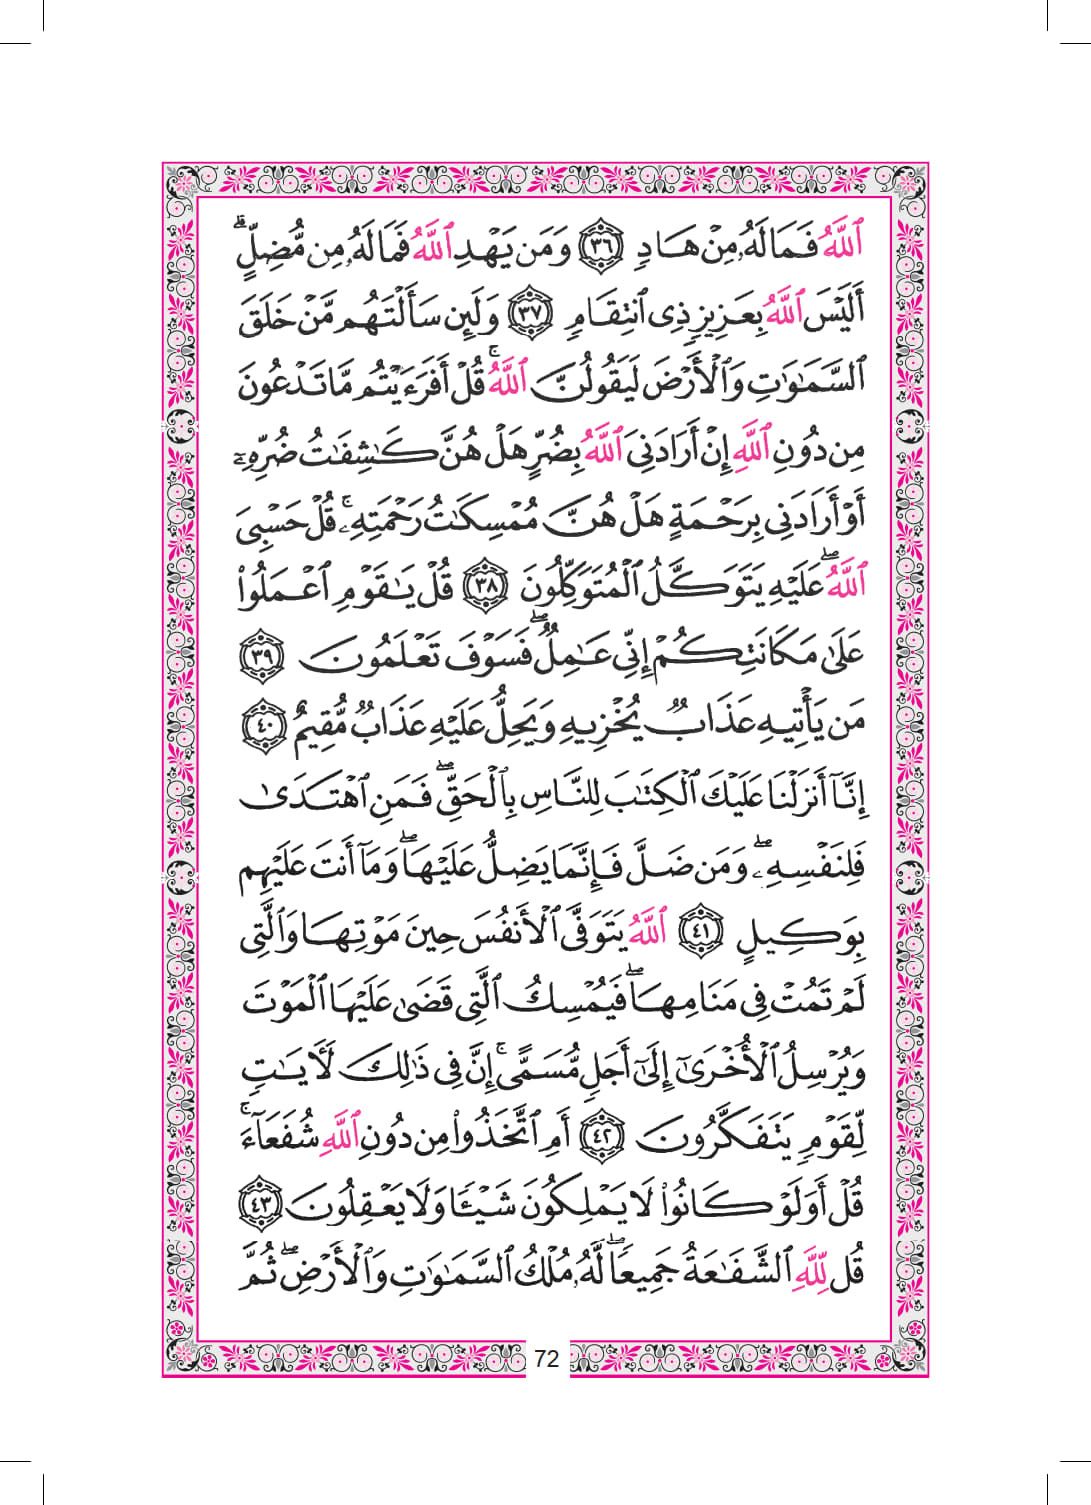 ٱللَّهُ فَمَا لَهُۥ مِنْ هَادٍ ٣٦ وَمَن يَهْدِ ٱللَّهُ فَمَا لَهُۥ مِن مُّضِلٍّ ۗ
أَلَيْسَ ٱللَّهُ بِعَزِيزٍ ذِى ٱنتِقَامٍ ٣٧ وَلَئِن سَأَلْتَهُم مَّنْ خَلَقَ
ٱلسَّمَـٰوَٰتِ وَٱلْأَرْضَ لَيَقُولُنَّ ٱللَّهُ ۚ قُلْ أَفَرَءَيْتُم مَّا تَدْعُونَ
مِن دُونِ ٱللَّهِ إِنْ أَرَادَنِىَ ٱللَّهُ بِضُرٍّ هَلْ هُنَّ كَـٰشِفَـٰتُ ضُرِّهِۦٓ
أَوْ أَرَادَنِى بِرَحْمَةٍ هَلْ هُنَّ مُمْسِكَـٰتُ رَحْمَتِهِۦ ۚ قُلْ حَسْبِىَ
ٱللَّهُ ۖ عَلَيْهِ يَتَوَكَّلُ ٱلْمُتَوَكِّلُونَ ٣٨ قُلْ يَـٰقَوْمِ ٱعْمَلُوا۟
عَلَىٰ مَكَانَتِكُمْ إِنِّى عَـٰمِلٌ ۖ فَسَوْفَ تَعْلَمُونَ ٣٩
مَن يَأْتِيهِ عَذَابٌ يُخْزِيهِ وَيَحِلُّ عَلَيْهِ عَذَابٌ مُّقِيمٌ ٤٠
إِنَّآ أَنزَلْنَا عَلَيْكَ ٱلْكِتَـٰبَ لِلنَّاسِ بِٱلْحَقِّ ۖ فَمَنِ ٱهْتَدَىٰ
فَلِنَفْسِهِۦ ۖ وَمَن ضَلَّ فَإِنَّمَا يَضِلُّ عَلَيْهَا ۖ وَمَآ أَنتَ عَلَيْهِم
بِوَكِيلٍ ٤١ ٱللَّهُ يَتَوَفَّى ٱلْأَنفُسَ حِينَ مَوْتِهَا وَٱلَّتِى
لَمْ تَمُتْ فِى مَنَامِهَا ۖ فَيُمْسِكُ ٱلَّتِى قَضَىٰ عَلَيْهَا ٱلْمَوْتَ
وَيُرْسِلُ ٱلْأُخْرَىٰٓ إِلَىٰٓ أَجَلٍ مُّسَمًّى ۚ إِنَّ فِى ذَٰلِكَ لَـَٔايَـٰتٍ
لِّقَوْمٍ يَتَفَكَّرُونَ ٤٢ أَمِ ٱتَّخَذُوا۟ مِن دُونِ ٱللَّهِ شُفَعَآءَ ۚ
قُلْ أَوَلَوْ كَانُوا۟ لَا يَمْلِكُونَ شَيْـًٔا وَلَا يَعْقِلُونَ ٤٣
قُل لِّلَّهِ ٱلشَّفَـٰعَةُ جَمِيعًا ۖ لَّهُۥ مُلْكُ ٱلسَّمَـٰوَٰتِ وَٱلْأَرْضِ ۖ ثُمَّ
72